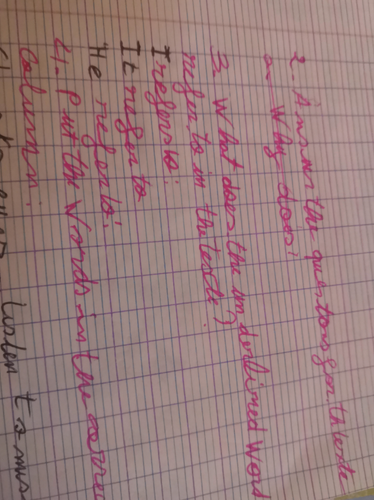 2. Answer the questions on the te
a- Why does
3. What does the underlined Wor
refer to in the texte?
I refers to:
It refer to
He refers to:
4. Put the Words in the corre
Column:
listen to mus